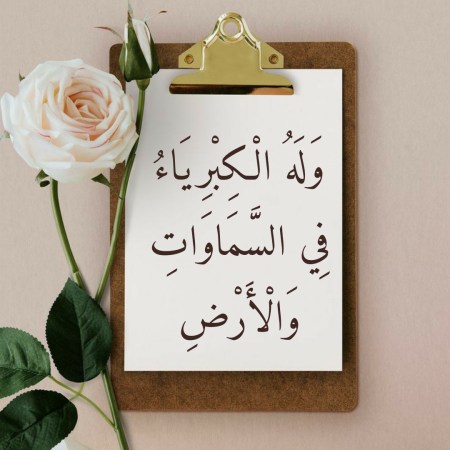 وَلَهُ الْكِبْرِيَاءُ
فِي السَّمَاوَاتِ
وَالْأَرْضِ